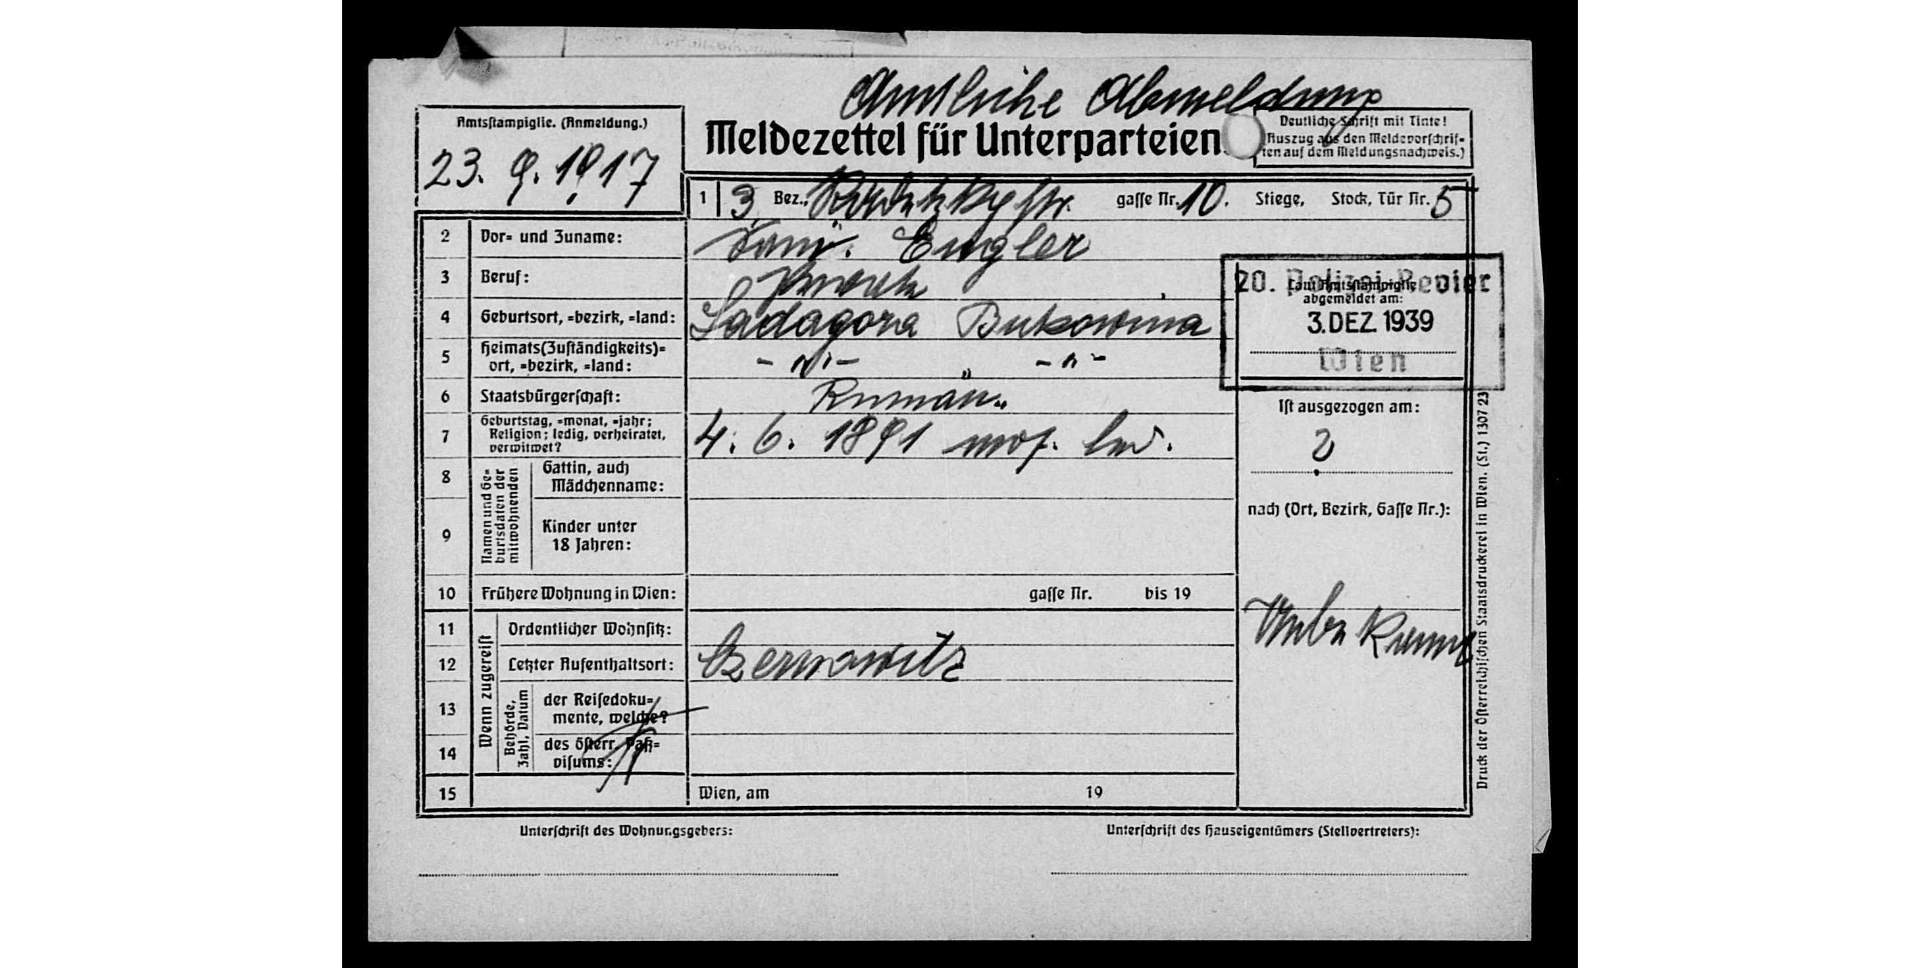 Amtliche Abmeldung
Amtsstampiglie. (Anmeldung.)
23. 9. 1917
Meldezettel für Unterparteien.
Deutliche Schrift mit Tinte!
(Auszug aus den Meldevorschrif-
ten auf dem Meldungsnachweis.)
1 3 Bez., Radetzkystr. gasse Nr. 10. Stiege, Stock, Tür Nr. 5
2 Vor- und Zuname: Engler
3 Beruf: Private
4 Geburtsort, -bezirk, -land: Sadagora Bukowina
5 Heimats(Zuständigkeits)-
ort, -bezirk, -land: - " - - " -
6 Staatsbürgerschaft: Rumän.
7 Geburtstag, -monat, -jahr;
Religion; ledig, verheiratet,
verwitwet?
4. 6. 1891 mos. led.
Namen und Ge-
burtsdaten der
mitwohnenden
8 Gattin, auch
Mädchenname:
9 Kinder unter
18 Jahren:
10 Frühere Wohnung in Wien: gasse Nr. bis 19
Wenn zugereist
11 Ordentlicher Wohnsitz:
12 Letzter Aufenthaltsort: Czernowitz
Behörde,
Zahl, Datum
13 der Reisedoku-
mente, welche?
14 des österr. Paß-
visums:
15 Wien, am 19
20. Polizei-Revier
Laut Amtsstampiglie
abgemeldet am:
3. DEZ. 1939
Wien
Ist ausgezogen am:
?
nach (Ort, Bezirk, Gasse Nr.):
Unbekannt
Druck der Österreichischen Staatsdruckerei in Wien. (St.) 1307 23
Unterschrift des Wohnungsgebers:
Unterschrift des Hauseigentümers (Stellvertreters):